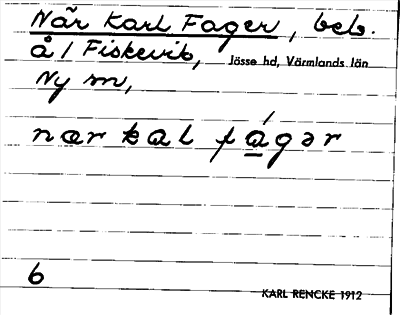 När Karl Fager, beb.
å / Fiskevik, Jösse hd, Värmlands län
Ny sn,
nær kal fágər
6
KARL RENCKE 1912